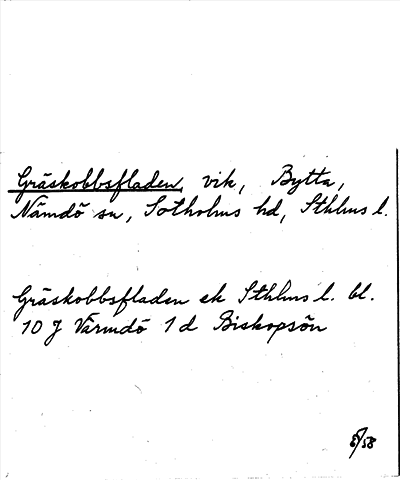 Gräskobbsfladen, vik, Bytta,
Nämdö sn, Sotholms hd, Sthlms l.
Gräskobbsfladen ek Sthlms l. bl.
10 J Värmdö 1 d Biskopsön
/58